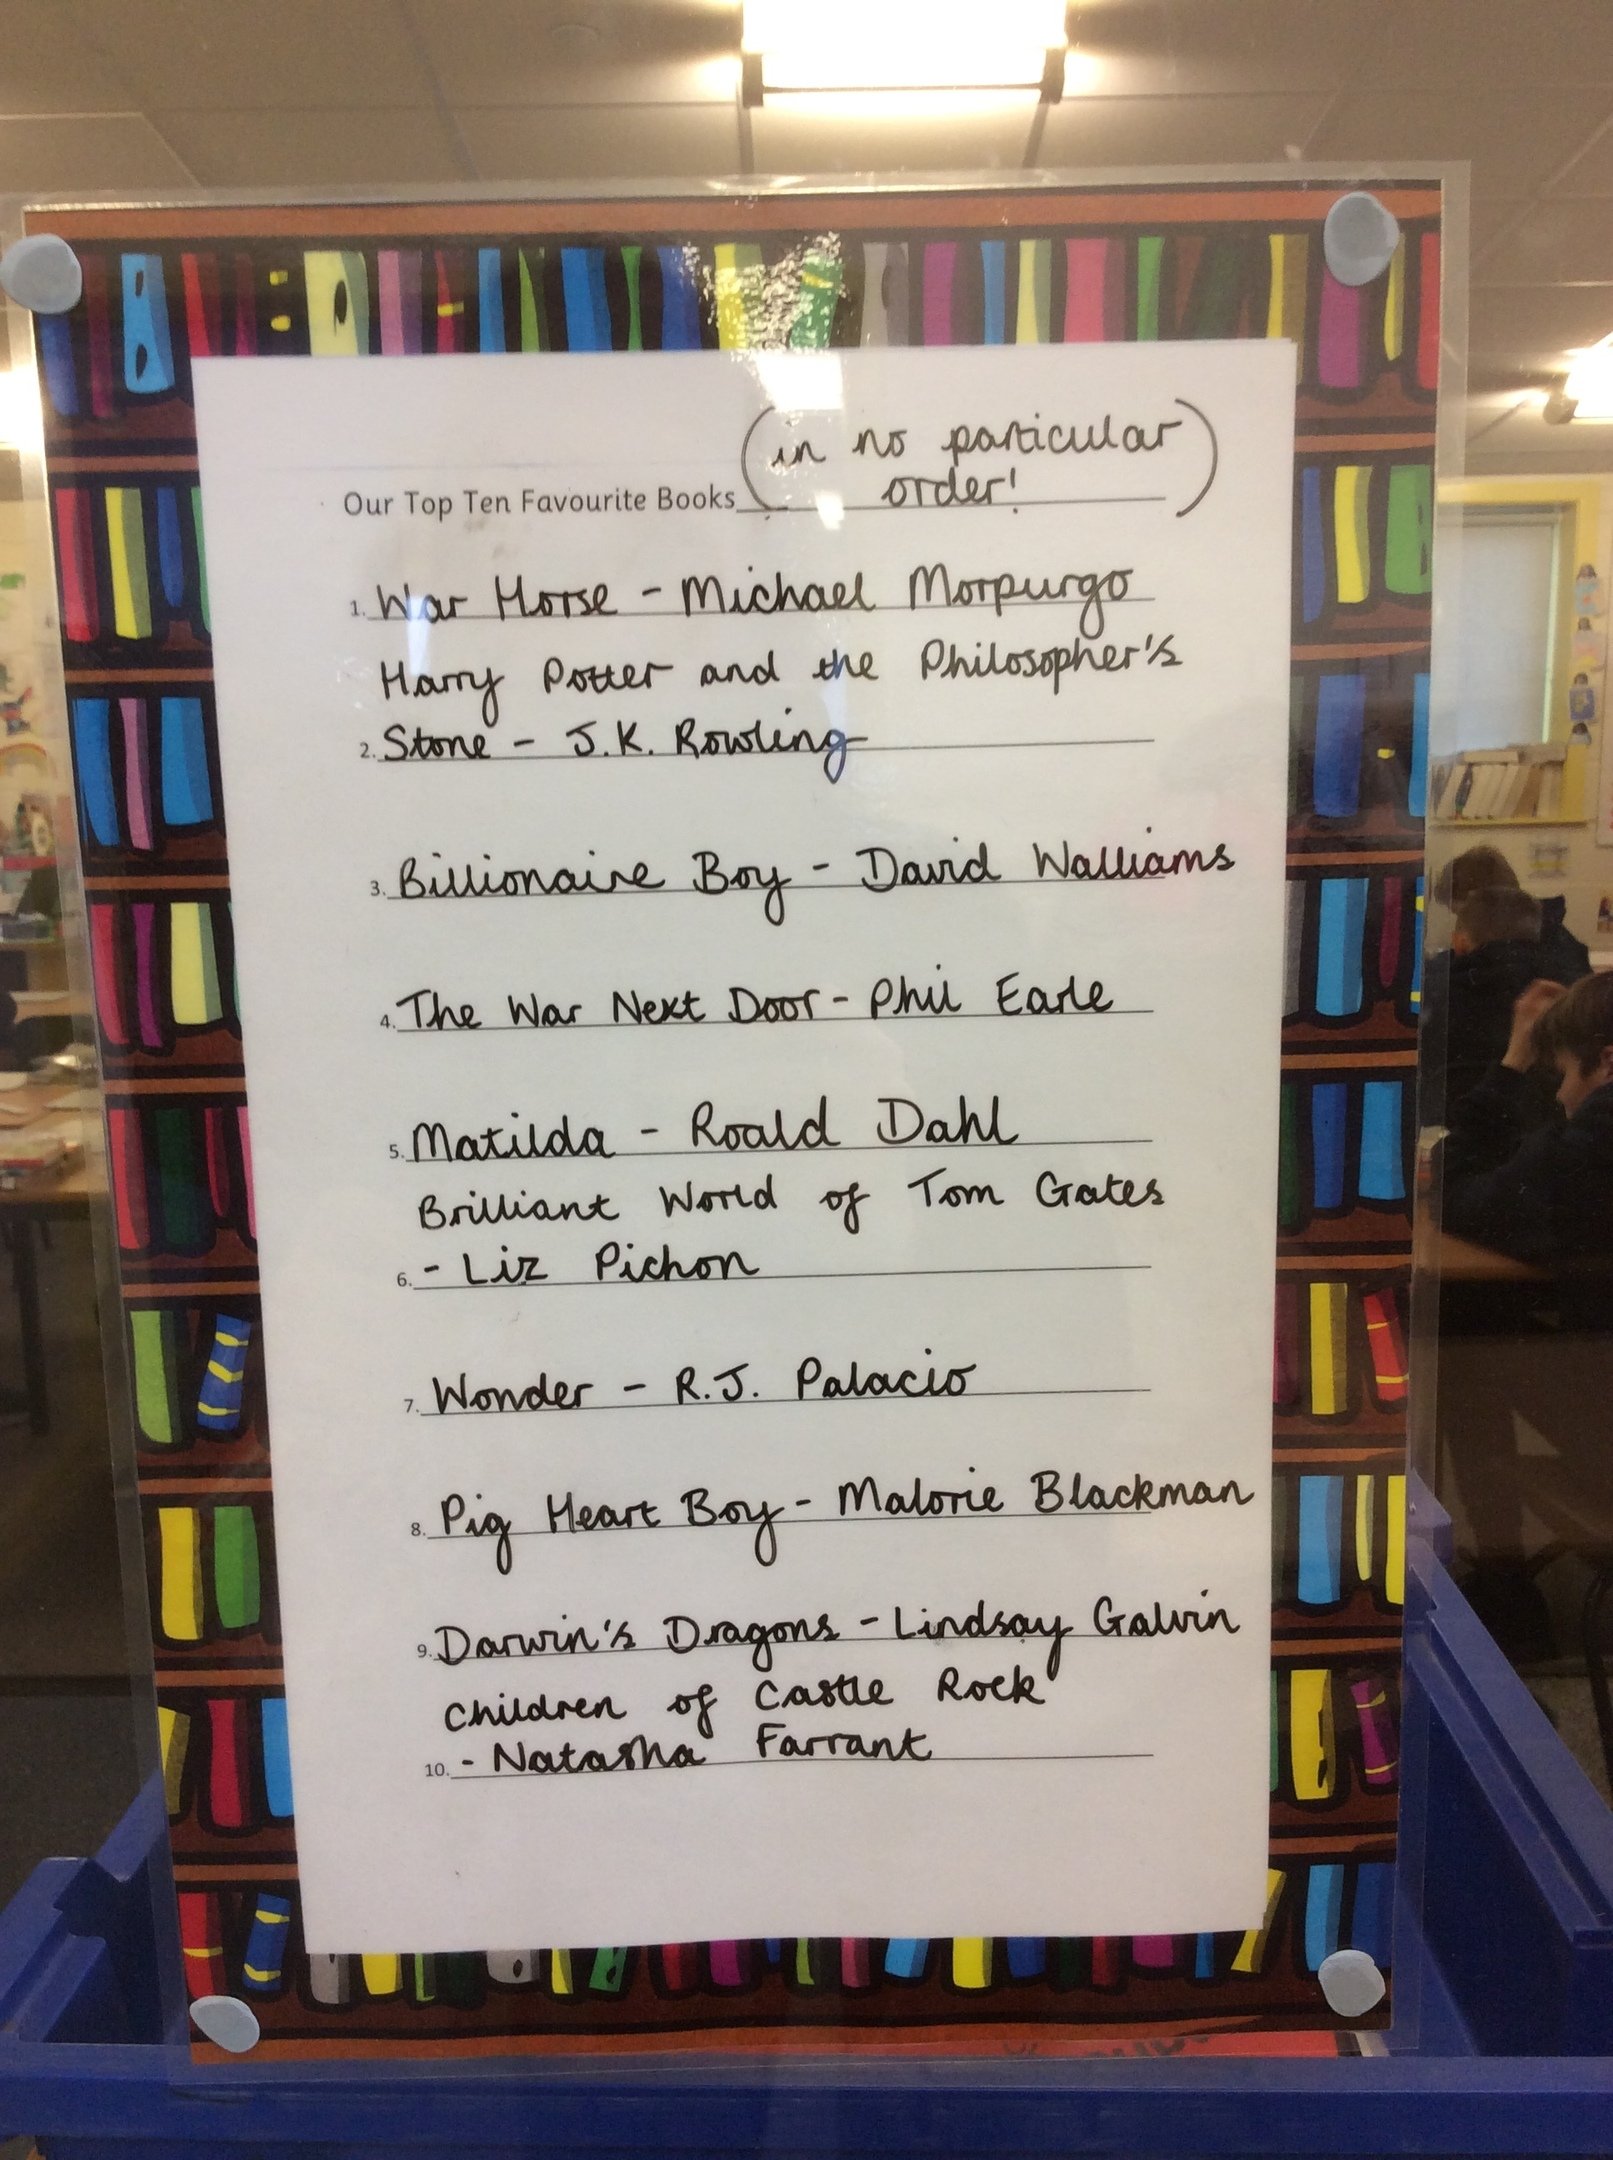 (in no particular
Our Top Ten Favourite Books order!)
1. War Horse - Michael Morpurgo
Harry Potter and the Philosopher's
2. Stone - J.K. Rowling
3. Billionaire Boy - David Walliams
4. The War Next Door - Phil Earle
5. Matilda - Roald Dahl
Brilliant World of Tom Gates
6. - Liz Pichon
7. Wonder - R.J. Palacio
8. Pig Heart Boy - Malorie Blackman
9. Darwin's Dragons - Lindsay Galvin
Children of Castle Rock
10. - Natasha Farrant